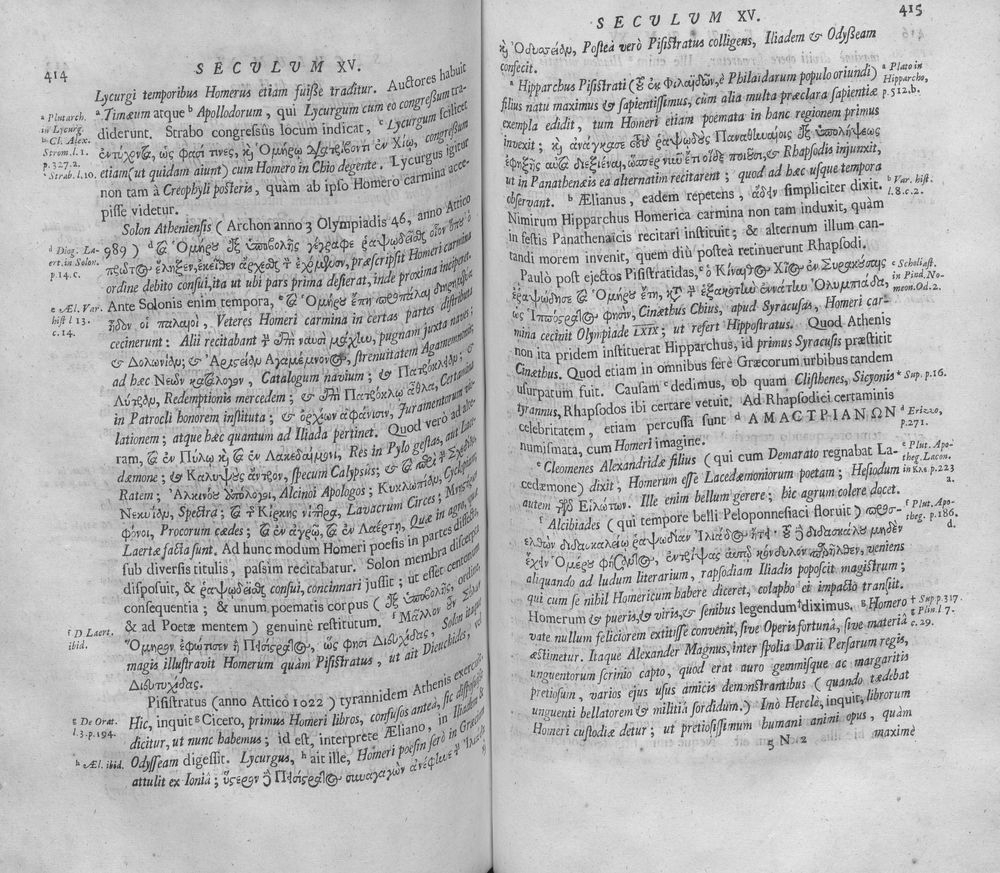 414
SECULUM XV.
Lycurgi temporibus Homerus etiam fuiße traditur. Auctores habuit
ᵃ Timæum atque ᵇ Apollodorum, qui Lycurgum cum eo congreſſum tra-
diderunt. Strabo congreſſûs locum indicat, ᶜ Lycurgum ſcilicet
ἐντυχόντα, ὥς φασί τινες, καὶ Ὁμήρῳ διατρίβοντι ἐν Χίῳ, congreſſum
etiam (ut quidam aiunt) cum Homero in Chio degente. Lycurgus igitur
non tam à Creophyli poſteris, quam ab ipſo Homero carmina acce-
piſſe videtur.
Solon Athenienſis (Archon anno 3 Olympiadis 46, anno Attico
989) ᵈ τὰ Ὁμήρου ἐξ ὑποβολῆς γέγραφε ῥαψῳδεῖσθαι οἷον ὅπου ὁ
πρῶτος ἔληξεν, ἐκεῖθεν ἄρχεσθαι τὸν ἐχόμενον, præſcripſit Homeri carmina
ordine debito conſui, ita ut ubi pars prima deſierat, inde proxima inciperet.
Ante Solonis enim tempora, ᵉ τὰ Ὁμήρου ἔπη πρότερον διῃρημένα
ᾖδον οἱ παλαιοί, Veteres Homeri carmina in certas partes diſtributa
cecinerunt: Alii recitabant τὴν ἐπὶ ναυσὶ μάχην, pugnam juxta naves;
& Δολωνίδυ; & Ἀριστείδυ Αγαμέμνονος, ſtrenuitatem Agamemnonis;
ad hæc Νεῶν κατάλογον, Catalogum navium; & Πατρόκλειδυ; &
Λύτειδυ, Redemptionis mercedem; & τὰ ἐπὶ Πατρόκλῳ ἆθλα, Certamina
in Patrocli honorem inſtituta; & ὁρκίων ἀφάνισιν, Juramentorum vio-
lationem; atque hæc quantum ad Iliada pertinet. Quod verò ad alte-
ram, τὰ ἐν Πύλῳ καὶ τὰ ἐν Λακεδαίμονι, Res in Pylo geſtas, aut Lace-
dæmone; & Καλυψοῦς ἄντρον, ſpecum Calypſus; & τὰ περὶ τὴν Σχεδίαν,
Ratem; Ἀλκίνου ἀπόλογοι, Alcinoi Apologos; Κυκλωπίδυ, Cyclopiam;
Νεκυίδυ, Spectra; τὰ τῆς Κίρκης νίπτρα, Lavacrum Circes; Μνηστήρων
φόνοι, Procorum cædes; τὰ ἐν ἀγρῷ, τὰ ἐν Λαέρτῃ, Quæ in agro, quæ
Laertæ facta ſunt. Ad hunc modum Homeri poeſis in partes diſſecta,
ſub diverſis titulis, paſſim recitabatur. Solon membra diſcerpta
diſpoſuit, & ῥαψῳδεῖσθαι conſui, concinnari juſſit; ut eſſet centonum
conſequentia; & unum poematis corpus (ἐξ ὑποβολῆς, ordine,
& ad Poetæ mentem) genuinè reſtitutum. ᶠ Μᾶλλον οὖν Σόλων
Ὅμηρον ἐφώτισεν ἢ Πεισίστρατος, ὥς φησι Διευχίδας, Solon itaque
magis illuſtravit Homerum quàm Piſiſtratus, ut ait Dieuchidas, vel
Διευτυχίδας.
Piſiſtratus (anno Attico 1022) tyrannidem Athenis exercuit.
Hic, inquit ᵍ Cicero, primus Homeri libros, confuſos anteà, ſic diſpoſuiſſe
dicitur, ut nunc habemus; id eſt, interprete Æliano, in Iliadem &
Odyſſeam digeſſit. Lycurgus, ʰ ait ille, Homeri poeſin ſerò in Græciam
attulit ex Ioniâ; ὕστερον δὲ Πεισίστρατος συναγαγὼν ἀνέφηνε τὴν Ἰλιάδα
ᵃ Plutarch.
in Lycurg.
ᵇ Cl. Alex.
Strom. l. 1.
p. 327. 2.
ᶜ Strab. l. 10.
ᵈ Diog. La-
ert. in Solon.
p. 14. c.
ᵉ Æl. Var.
hiſt l 13.
c. 14.
ᶠ D Laert.
ibid.
ᵍ De Orat.
l. 3. p. 194.
ʰ Æl. ibid.
SECULUM XV.
415
καὶ Ὀδύσειδυ, Poſteà verò Piſiſtratus colligens, Iliadem & Odyßeam
confecit.
ᵃ Hipparchus Piſiſtrati (τῶν ἐκ Φιλαιδῶν, è Philaidarum populo oriundi)
filius natu maximus & ſapientiſſimus, cùm alia multa præclara ſapientiæ
exempla edidit, tum Homeri etiam poemata in hanc regionem primus
invexit; καὶ ἀνάγκασε τοὺς ῥαψῳδοὺς Παναθηναίοις ἐξ ὑπολήψεως
ἐφεξῆς αὐτὰ διϊέναι, ὥσπερ νῦν ἔτι οἵδε ποιοῦσι, & Rhapſodis injunxit,
ut in Panathenæis ea alternatim recitarent; quod ad hæc uſque tempora
obſervant. ᵇ Ælianus, eadem repetens, ᾄδειν ſimpliciter dixit.
Nimirum Hipparchus Homerica carmina non tam induxit, quàm
in feſtis Panathenaicis recitari inſtituit; & alternum illum can-
tandi morem invenit, quem diù poſteà retinuerunt Rhapſodi.
Paulò poſt ejectos Piſiſtratidas, ᶜ ὁ Κίναιθος Χῖος ἐν Συρακούσαις
ἐραψῴδησε τὰ Ὁμήρου ἔπη, κατὰ τὴν ἑξηκοστὴν ἐννάτην Ὀλυμπιάδα,
ὡς Ἱππόστρατός φησιν, Cinæthus Chius, apud Syracuſas, Homeri car-
mina cecinit Olympiade LXIX; ut refert Hippoſtratus. Quod Athenis
non ita pridem inſtituerat Hipparchus, id primus Syracuſis præſtitit
Cinæthus. Quod etiam in omnibus ferè Græcorum urbibus tandem
uſurpatum fuit. Cauſam * dedimus, ob quam Cliſthenes, Sicyonis
tyrannus, Rhapſodos ibi certare vetuit. Ad Rhapſodici certaminis
celebritatem, etiam percuſſa ſunt ᵈ ΑΜΑΣΤΡΙΑΝΩΝ
numiſmata, cum Homeri imagine.
ᵉ Cleomenes Alexandridæ filius (qui cum Demarato regnabat La-
cedæmone) dixit, Homerum eſſe Lacedæmoniorum poetam; Heſiodum
autem τῶν Εἱλώτων. Ille enim bellum gerere; hic agrum colere docet.
ᶠ Alcibiades (qui tempore belli Peloponneſiaci floruit) προσ-
ελθὼν διδασκαλείῳ ῥαψῳδίαν Ἰλιάδος ᾔτει· τοῦ δὲ διδασκάλου μηδὲν
ἔχειν Ὁμήρου φήσαντος, ἐντρίψας αὐτῷ κόνδυλον παρῆλθεν, veniens
aliquando ad ludum literarium, rapſodiam Iliadis popoſcit magiſtrum;
qui cum ſe nihil Homericum habere diceret, colapho ei impacto tranſiit.
Homerum & pueris, & viris, & ſenibus legendum † diximus. ᵍ Homero
vate nullum feliciorem extitiſſe convenit, ſive Operis fortunâ, ſive materiâ
æſtimetur. Itaque Alexander Magnus, inter ſpolia Darii Perſarum regis,
unguentorum ſcrinio capto, quod erat auro gemmiſque ac margaritis
pretioſum, varios ejus uſus amicis demonſtrantibus (quando tædebat
unguenti bellatorem & militiâ ſordidum.) Imò Herclè, inquit, librorum
Homeri cuſtodiæ detur; ut pretioſiſſimum humani animi opus, quàm
5 N 2
maximè
ᵃ Plato in
Hipparcho,
p. 512. b.
ᵇ Var. hiſt.
l. 8. c. 2.
ᶜ Scholiaſt.
in Pind. No-
meon. Od. 2.
* Sup. p. 16.
ᵈ Erizzo,
p. 271.
ᵉ Plut. Apo-
theg. Lacon.
in Κλε p. 223
a.
ᶠ Plut. Apo-
theg. p. 186.
d.
† Sup p. 317.
ᵍ Plin. l 7.
c. 29.